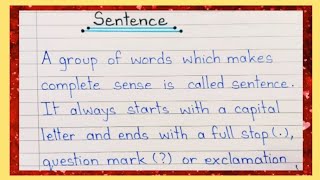 Sentence
A group of words which makes
complete sense is called sentence.
It always starts with a capital
letter and ends with a full stop(.),
question mark (?) or exclamation